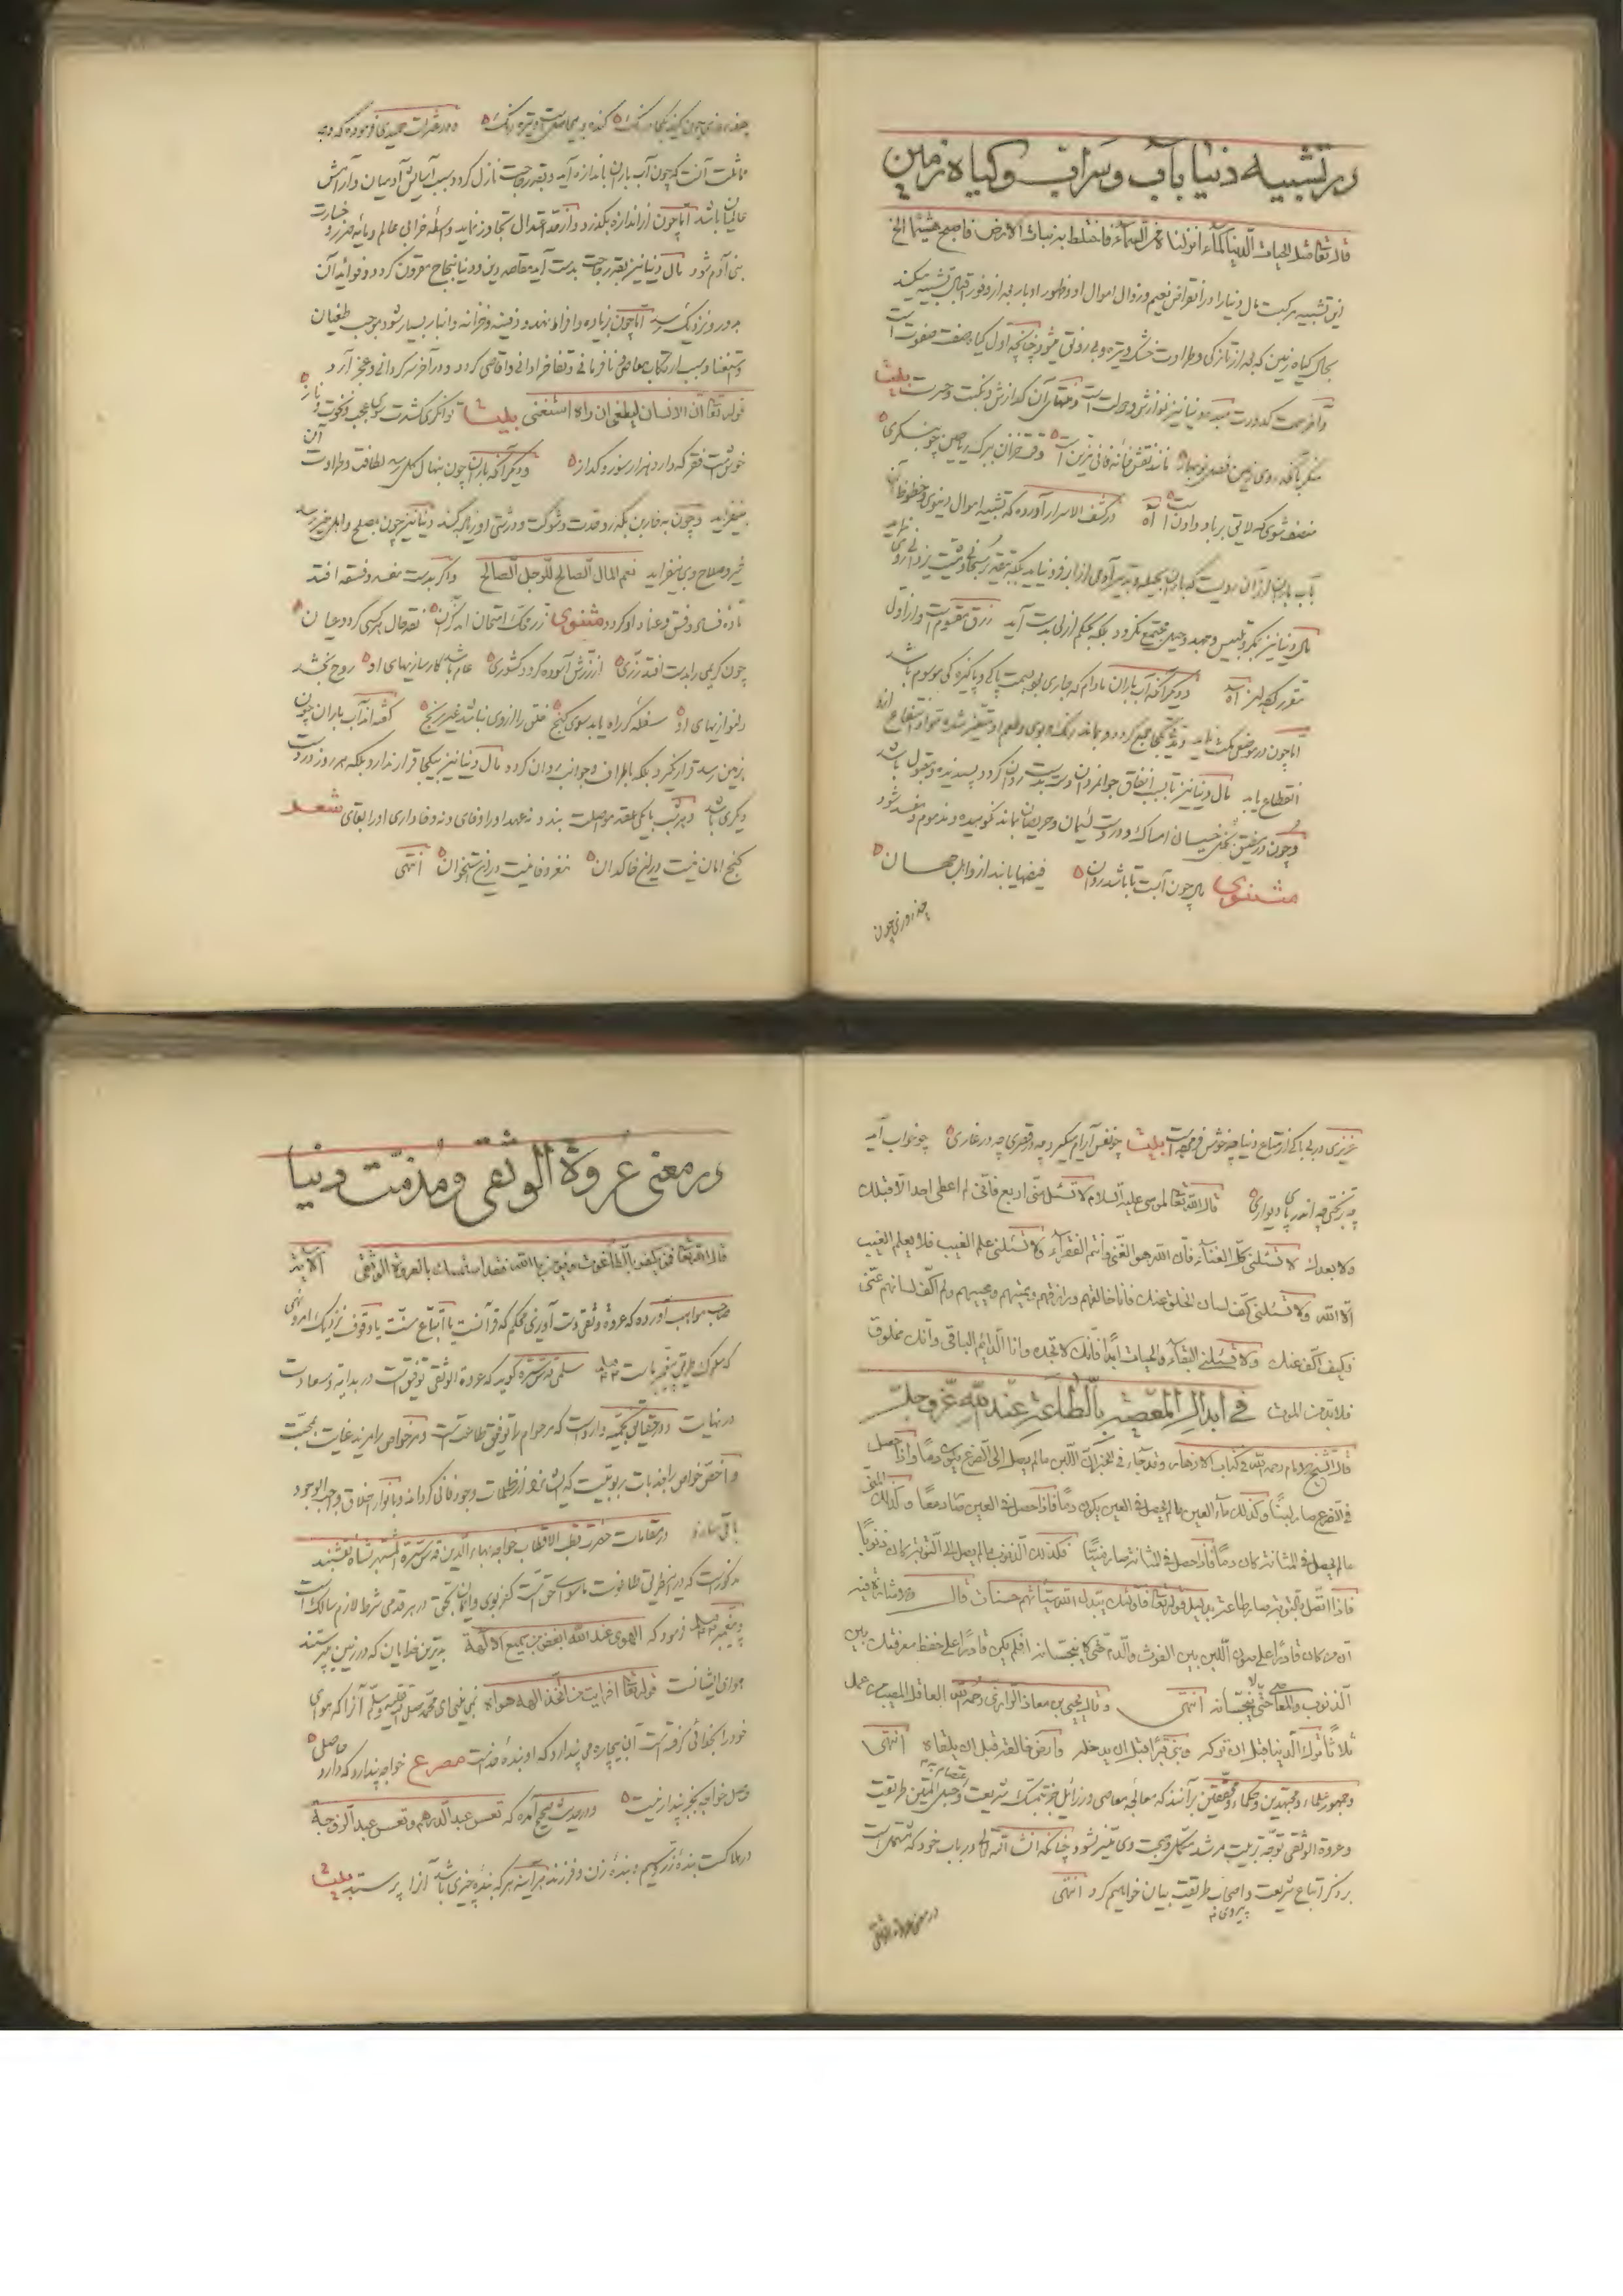 در تشبیه دنیا بآب و سراب و کیاه زمین
قال تعالی مثل الحیات الدنیا کماء انزلناه من السماء فاختلط به نبات الارض فاصبح هشیما الخ
این تشبیه مرکبست مال دنیا را در انقراض نعیم و زوال اموال او و ظهور ادبار بعد از وفور اقبال تشبیه میکند
بحال کیاه زمین که بعد از تازکی و طراوت خشک و تیره و بی رونق میشود چنانچه اول کیاه صفت صفوت است
و آخر سمت کدورت دنیا نیز نوازش و دولت است و منتهای آن کدازش و نکبت و حسرت بیت
منکر بآنکه روی زمین فصل نوبهار مانند نقش خانه مانی مزین است وقت خزان ببرک ریاحین چو بنکری
منصف شوی که لایق بر باد دادن است اه در کشف الاسرار آورده که تشبیه اموال دنیوی و حظوظ آن
بآب باران از آن رویست که باران بحیله و تدبیر آدمی از ابر فرو نیاید بلکه بتقدیر سبحانی و مشیت یزدانی
مال دنیا نیز بمکر و تلبیس و جهد و حیل مجتمع نکردد بلکه بحکم ازلی بدست آید رزق مقسومست و از اول
مقرر کرده اند اه و دیکر آنکه آب باران مادام که جاری بود بسمت پاکی و پاکیزه کی موسوم باشد
اما چون در موضعی مکث نماید و مدتی یکجا جمع کردد و بماند رنک و بوی و طعم او متغیر شده مواد انتفاع ازو
انقطاع یابد مال دنیا نیز تا بسبب انفاق جوانمردان دست بدست روان کردد پسندیده و مقبول باشد
و چون در مضیق بخل خسیسان امساک و در دست لئیمان و حریصان بماند نکوهیده و مذموم و مفسد شود
مثنوی مال چون آبست تا باشد روان فیضها یابند از و اهل جهان
چند روزی چون
چند روزی چون کند یکجا درنک کنده و بیحاصلست و تیره رنک و در فقرات حمیدی فرموده که وجه
مماثلت آنست که چون آب باران باندازه آید و بقدر حاجت نازل کردد سبب آسایش آدمیان و آرامش
عالمیان باشد اما چون از اندازه بکذرد و از حد اعتدال تجاوز نماید واسطه خرابی عالم و مایه ضرر و خسارت
بنی آدم شود مال دنیا نیز بقدر حاجت بدست آید مقاصد دین و دنیا بنجاح مقرون کردد و فوائد آن
بدور و نزدیک رسد اما چون زیاده و افراط نهد و دفینه و خزانه و انبار بسیار شود موجب طغیان
و استغنا و سبب ارتکاب معاصی و نافرمانی و تفاخر ادانی و اقاصی کردد و در آخر سرکردانی و عجز آرد
قوله تعالی ان الانسان لیطغی ان رآه استغنی بیت توانکری کشدت سوی عجب و نخوت و ناز
خوشست فقر که دارد هزار سوز و کداز و دیکر آنکه باران چون بنهال کل رسد لطافت و طراوت آن
بیفزاید و چون بخاربن بکذرد حدت و شوکت و درشتی او زیاده کند دنیا نیز چون بمصلح و اهل خیر رسد
خیر و صلاح وی بیفزاید نعم المال الصالح للرجل الصالح و اکر بدست مفسد و فسقه افتد
ماده فساد و فسق و عناد او کردد مثنوی زر محک امتحان آمد بدان نقد حال هر کسی کردد عیان
چون کریمی را بدست افتد زری از زرش آسوده کردد کشوری عام باشد کارسازیهای او روح بخشد
دلنوازیهای او سفله کر راه یابد سوی کنج خلق را از وی نباشد غیر رنج کفته اند آب باران چون
بزمین رسد قرار نکیرد بلکه باطراف و جوانب روان کردد مال دنیا نیز بیکجا قرار ندارد بلکه هر روز در دست
دیکری باشد و هر شب با یکی عقد مواصلت بندد نه عهد او را وفای و نه وفاداری او را بقای شعر
کنج امان نیست درین خاکدان مغز وفا نیست درین استخوان انتهی
عزیزی در بی باکی از متاع دنیا چه خوش فرموده است بیت چو نفس آرام میکیرد چه در قصری چه در غاری چو خواب آید
چه بر تختی چه اندر پای دیواری قال الله تعالی لموسی علیه السلام لا تسئل منی اربع فانی لم اعطی احدا لا قبلک
ولا بعدک لا تسئلنی کل الغناء فان الله هو الغنی و انتم الفقراء ولا تسئلنی علم الغیب فلا یعلم الغیب
الا الله ولا تسئلنی کف لسان الخلق عنک فانا خالقهم و رازقهم و ممیتهم و محییهم ولم اکف لسانهم عنی
و کیف اکف عنک ولا تسئلنی البقاء والحیات ابدا فانک لا تجده وانا الدائم الباقی وانت مخلوق
فلابد من الموت فی ابدال المعصیة بالطاعة عند الله عز وجل
قال الشیخ الامام رحمه الله فی کتاب الازهار وقد جاء فی الخبر ان اللبن ما لم یصل الی الضرع یکون دما واذا حصل
فی الضرع صار لبنا وکذلک ماء العین ما لم یحصل فی العین یکون دما فاذا حصل فی العین صار دمعا وکذلک المنی
ما لم یحصل فی المثانة کان دما فاذا حصل فی المثانة صار منیا فکذلک الذنوب ما لم یصل الی التوبة کان ذنوبا
فاذا اتصل بالتوبة صار طاعة بدلیل قوله تعالی فاولئک یبدل الله سیئاتهم حسنات قال
ان من کان قادرا علی صون اللبن بین الفرث والدم حتی لا ینجسانه افلم یکن قادرا علی حفظ معرفتک بین
الذنوب والمعاصی حتی لا ینجسانه انتهی وقال یحیی بن معاذ الرازی رحمه الله العاقل المصیب من عمل
ثلاثا ترک الدنیا قبل ان تترکه وبنی قبرا قبل ان یدخله وارضی خالقه قبل ان یلقاه انتهی
و جمهور علماء و مجتهدین و حکماء و محققین برآنند که معالجه معاصی و رزائل جز بتمسک شریعت و حبل المتین طریقت
و عروة الوثقی توجه تربیت مرشد متمکن و صحبت وی میسر نشود چنانکه انشاء الله تعالی در باب خود که مشتمل است
بر ذکر اتباع شریعت و اصحاب طریقت بیان خواهیم کرد انتهی
پیروی
در معنی عروة الوثقی
در معنی عروة الوثقی و مذمت دنیا
قال الله تعالی فمن یکفر بالطاغوت ویؤمن بالله فقد استمسک بالعروة الوثقی الآیة
صاحب مواهب آورده که عروة وثقی دست آوری محکم که قرآنست یا اتباع سنت یا وقوف نزدیک امر و نهی
که سلوک طریق پیغمبر ماست سلمی قدس سره کوید که عروة الوثقی توفیق است در بدایه و سعادت
در نهایت و در حقایق نجمیه وارد است که مر عوام را توفیق طاعتست و مر خواص را مزید غایت بمحبت
و اخص خواص را جذبات ربوبیت که ایشانرا از ظلمات وجود فانی کرداند و بانوار اخلاق واجب الوجود
باقی سازد در مقامات حضرت قطب الاقطاب خواجه بهاء الدین قدس سره المشتهر بشاه نقشبند
مذکور است که درین طریق طاغوت ماسوای حق است کفر بوی و ایمان بحق در هر قدمی شرط لازم سالک است
و پیغمبر فرمود که الهوی عند الله ابغض من جمیع الآلهة بدترین خدایان که در زمین پرستند
هوای ایشانست قوله تعالی افرایت من اتخذ الهه هواه نمی بینی ای محمد صلی الله علیه وسلم آنرا که هوای
خود را بخدائی کرفته است آن بیچاره می پندارد که او بنده خداست مصرع خواجه پندارد که دارد حاصلی
حاصل خواجه بجز پندار نیست و در حدیث صحیح آمده که تعس عبد الدرهم و تعس عبد الزوجة
در هلاکست بنده زر و سیم و بنده زن و فرزند هر آینه هر که بنده چیزی باشد آنرا پرستد بیت